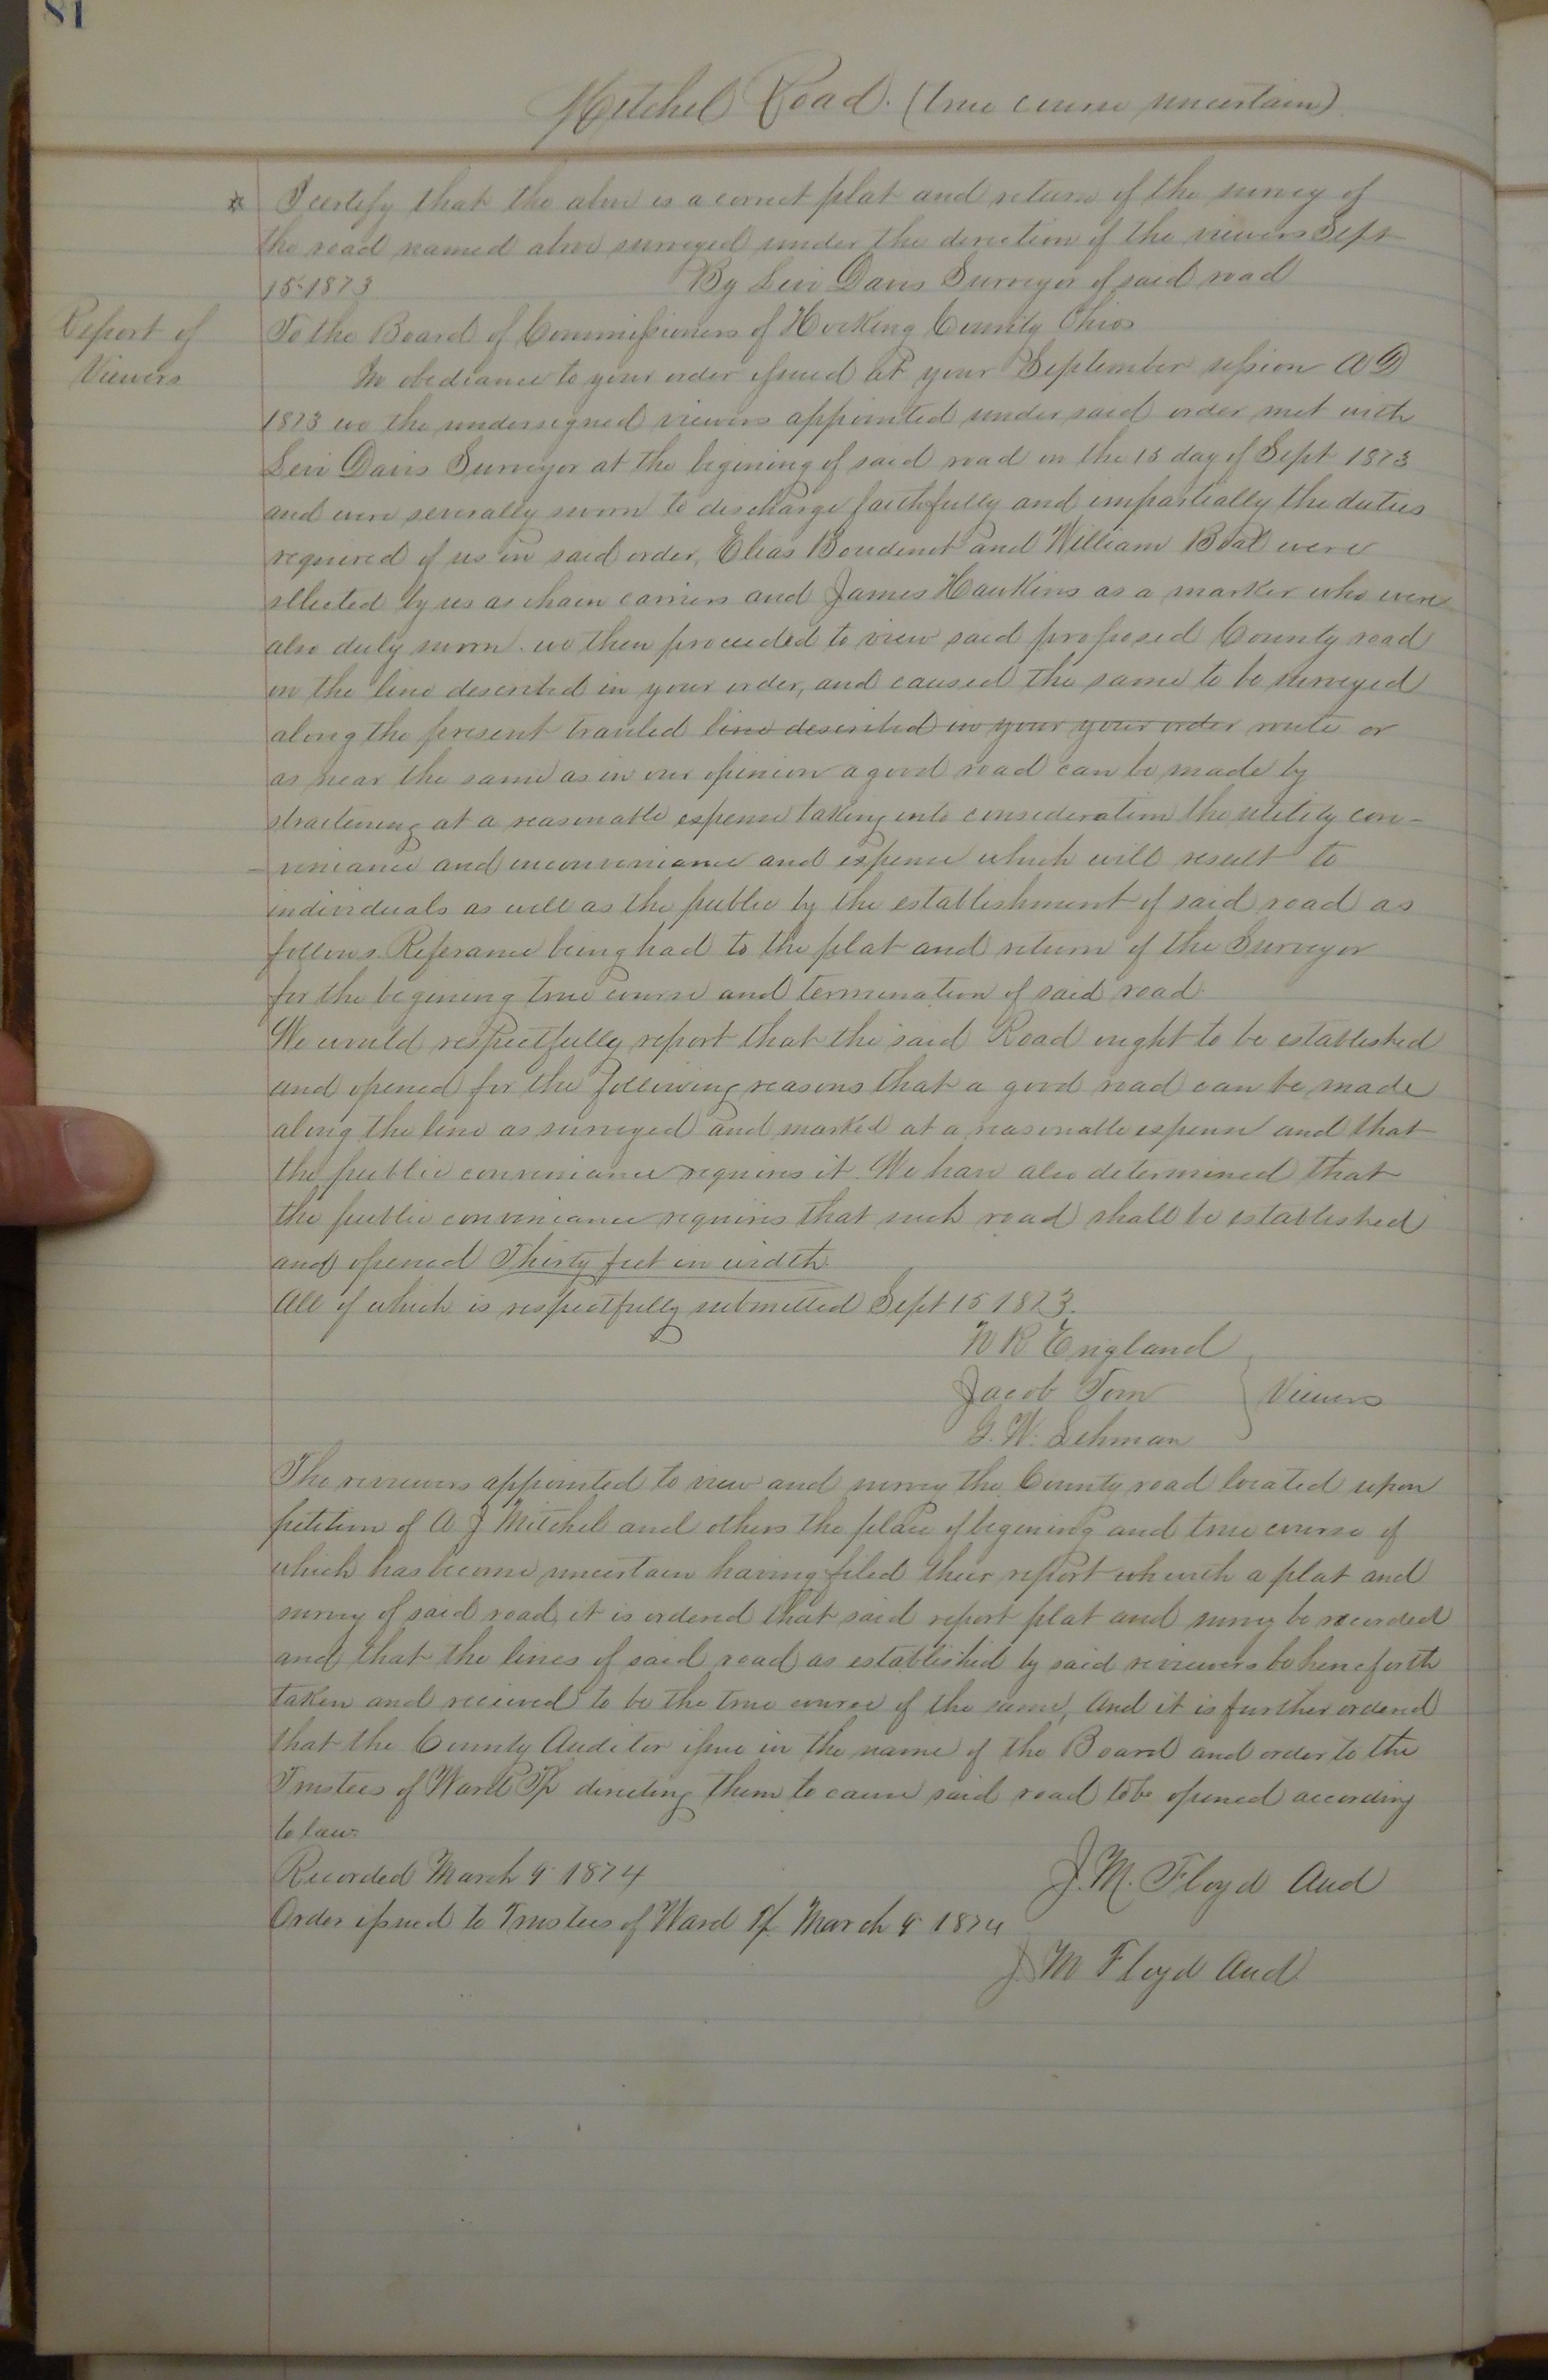 81
Mitchel Road. (true course uncertain)
* I certify that the abov is a correct plat and return of the survey of
the road named above surveyed under the direction of the viewers Sept
15 1873 By Levi Davis Surveyor of said road
Report of
Viewers
To the Board of Commissioners of Hocking County Ohio
In obediance to your order issued at your September session A D
1873 we the undersigned viewers appointed under said order met with
Levi Davis Surveyor at the begining of said road on the 15 day of Sept 1873
and were severally sworn to discharge faithfully and impartially the duties
required of us in said order, Elias Boudenot and William Beal were
sellected by us as chain carriers and James Hawkins as a marker who were
also duly sworn. we then proceeded to view said proposed County road
on the line described in your order, and caused the same to be surveyed
along the present travled line described in your your order route or
as near the same as in our opinion a good road can be made by
straitening at a reasonable expense taking into consideration the utility con-
-veniance and inconveniance and expense which will result to
individuals as well as the public by the establishment of said road as
follows. Referance being had to the plat and return of the Surveyor
for the begening true course and termination of said road.
We would respectfully report that the said Road ought to be established
and opened for the following reasons that a good road can be made
along the line as surveyed and marked at a reasonable expense and that
the public conveniance requires it. We have also determined that
the public conveniance requires that such road shall be established
and opened Thirty feet in width.
All of which is respectfully submitted Sept 15 1873.
W R England
Jacob Tom } Viewers
G. W. Lehman
The reviewers appointed to view and survey the County road located upon
petition of A J Mitchel and others the place of begening and true course of
which has become uncertain having filed their report with a plat and
survey of said road, it is ordered that said report plat and survey be recorded
and that the lines of said road as established by said reviewers be henceforth
taken and recieved to be the true course of the same, And it is further ordered
that the County Auditor issue in the name of the Board and order to the
Trustees of Ward Tp directing them to cause said road to be opened according
to law.
Recorded March 9 1874 J. M. Floyd Aud
Order issued to Trustees of Ward Tp March 9 1874
J M Floyd Aud.